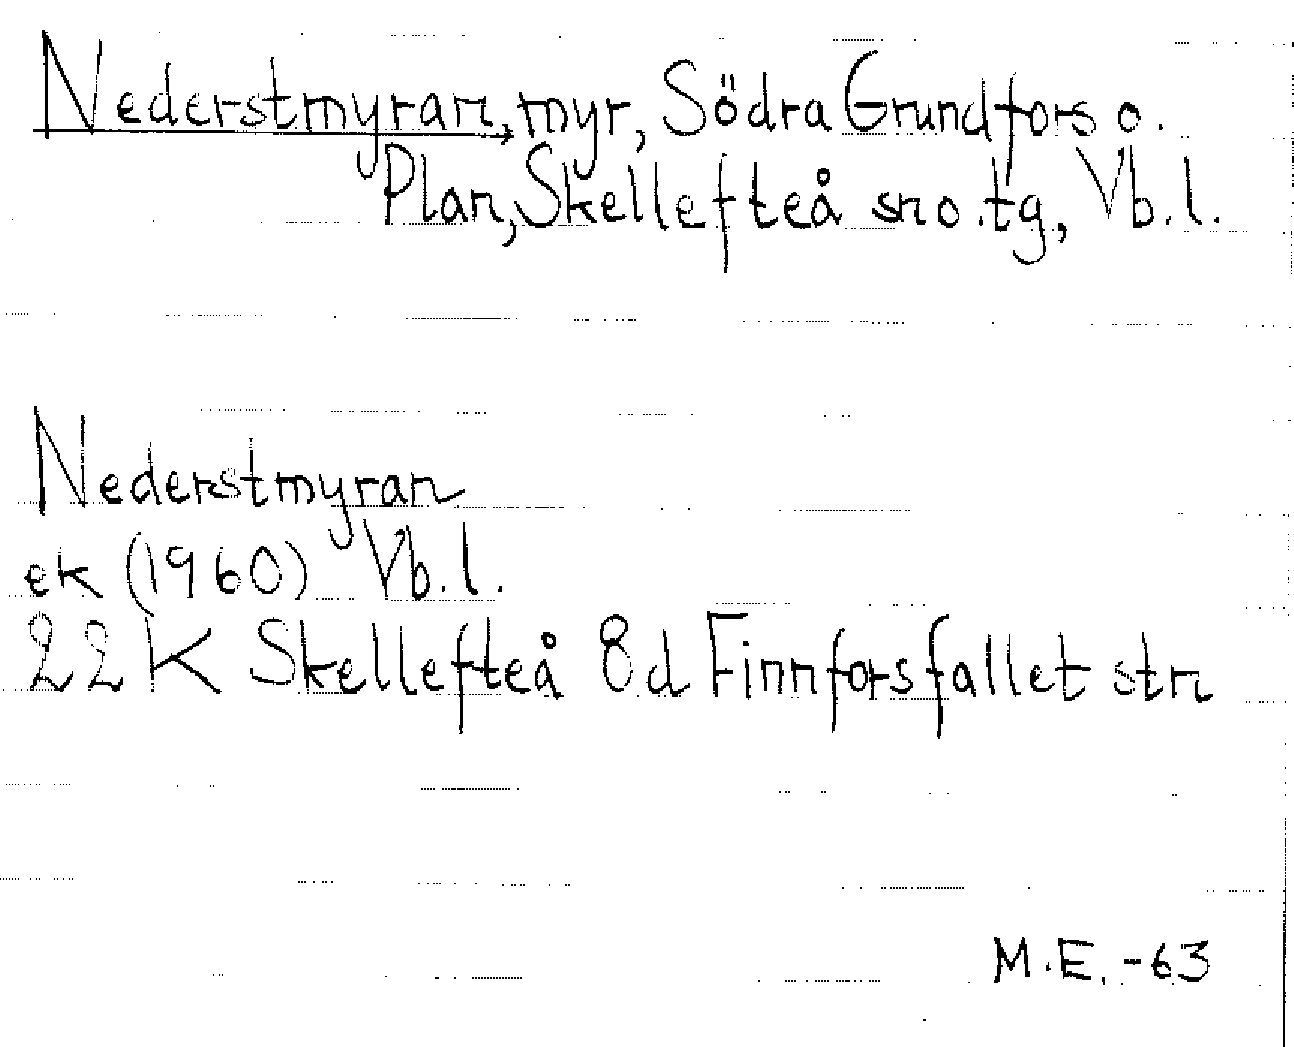 Nederstmyran, myr, Södra Grundfors o.
Plan, Skellefteå sn o. tg, Vb. l.
Nederstmyran
ek (1960) Vb. l.
22 K Skellefteå 8d Finnforsfallet str
M.E. -63